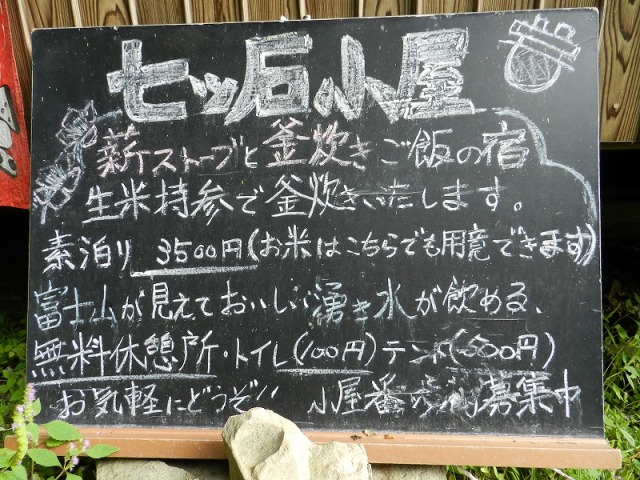 七ツ石小屋
薪ストーブと釜炊きご飯の宿
生米持参で釜炊きいたします。
素泊り 3500円(お米はこちらでも用意できます)
富士山が見えておいしい湧き水が飲める、
無料休憩所・トイレ(100円)テント(500円)
お気軽にどうぞ!! 小屋番 募集中